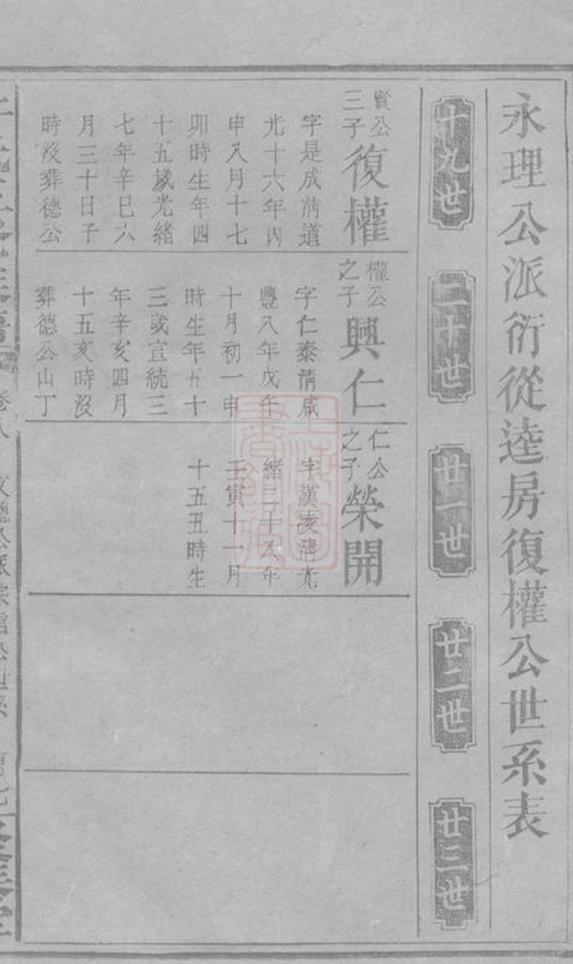 永理公派衍從逵房復權公世系表
十九世
二十世
廿一世
廿二世
廿三世
賢公
三子
復權
字是成清道
光十六年丙
申八月十七
卯時生年四
十五歲光緒
七年辛巳六
月三十日子
時沒葬德公
權公
之子
興仁
字仁泰清咸
豐八年戊午
十月初一申
時生年五十
三歲宣統三
年辛亥四月
十五亥時沒
葬德公山丁
仁公
之子
榮開
字漢凌清光
緒二十八年
壬寅十一月
十五丑時生
卷八